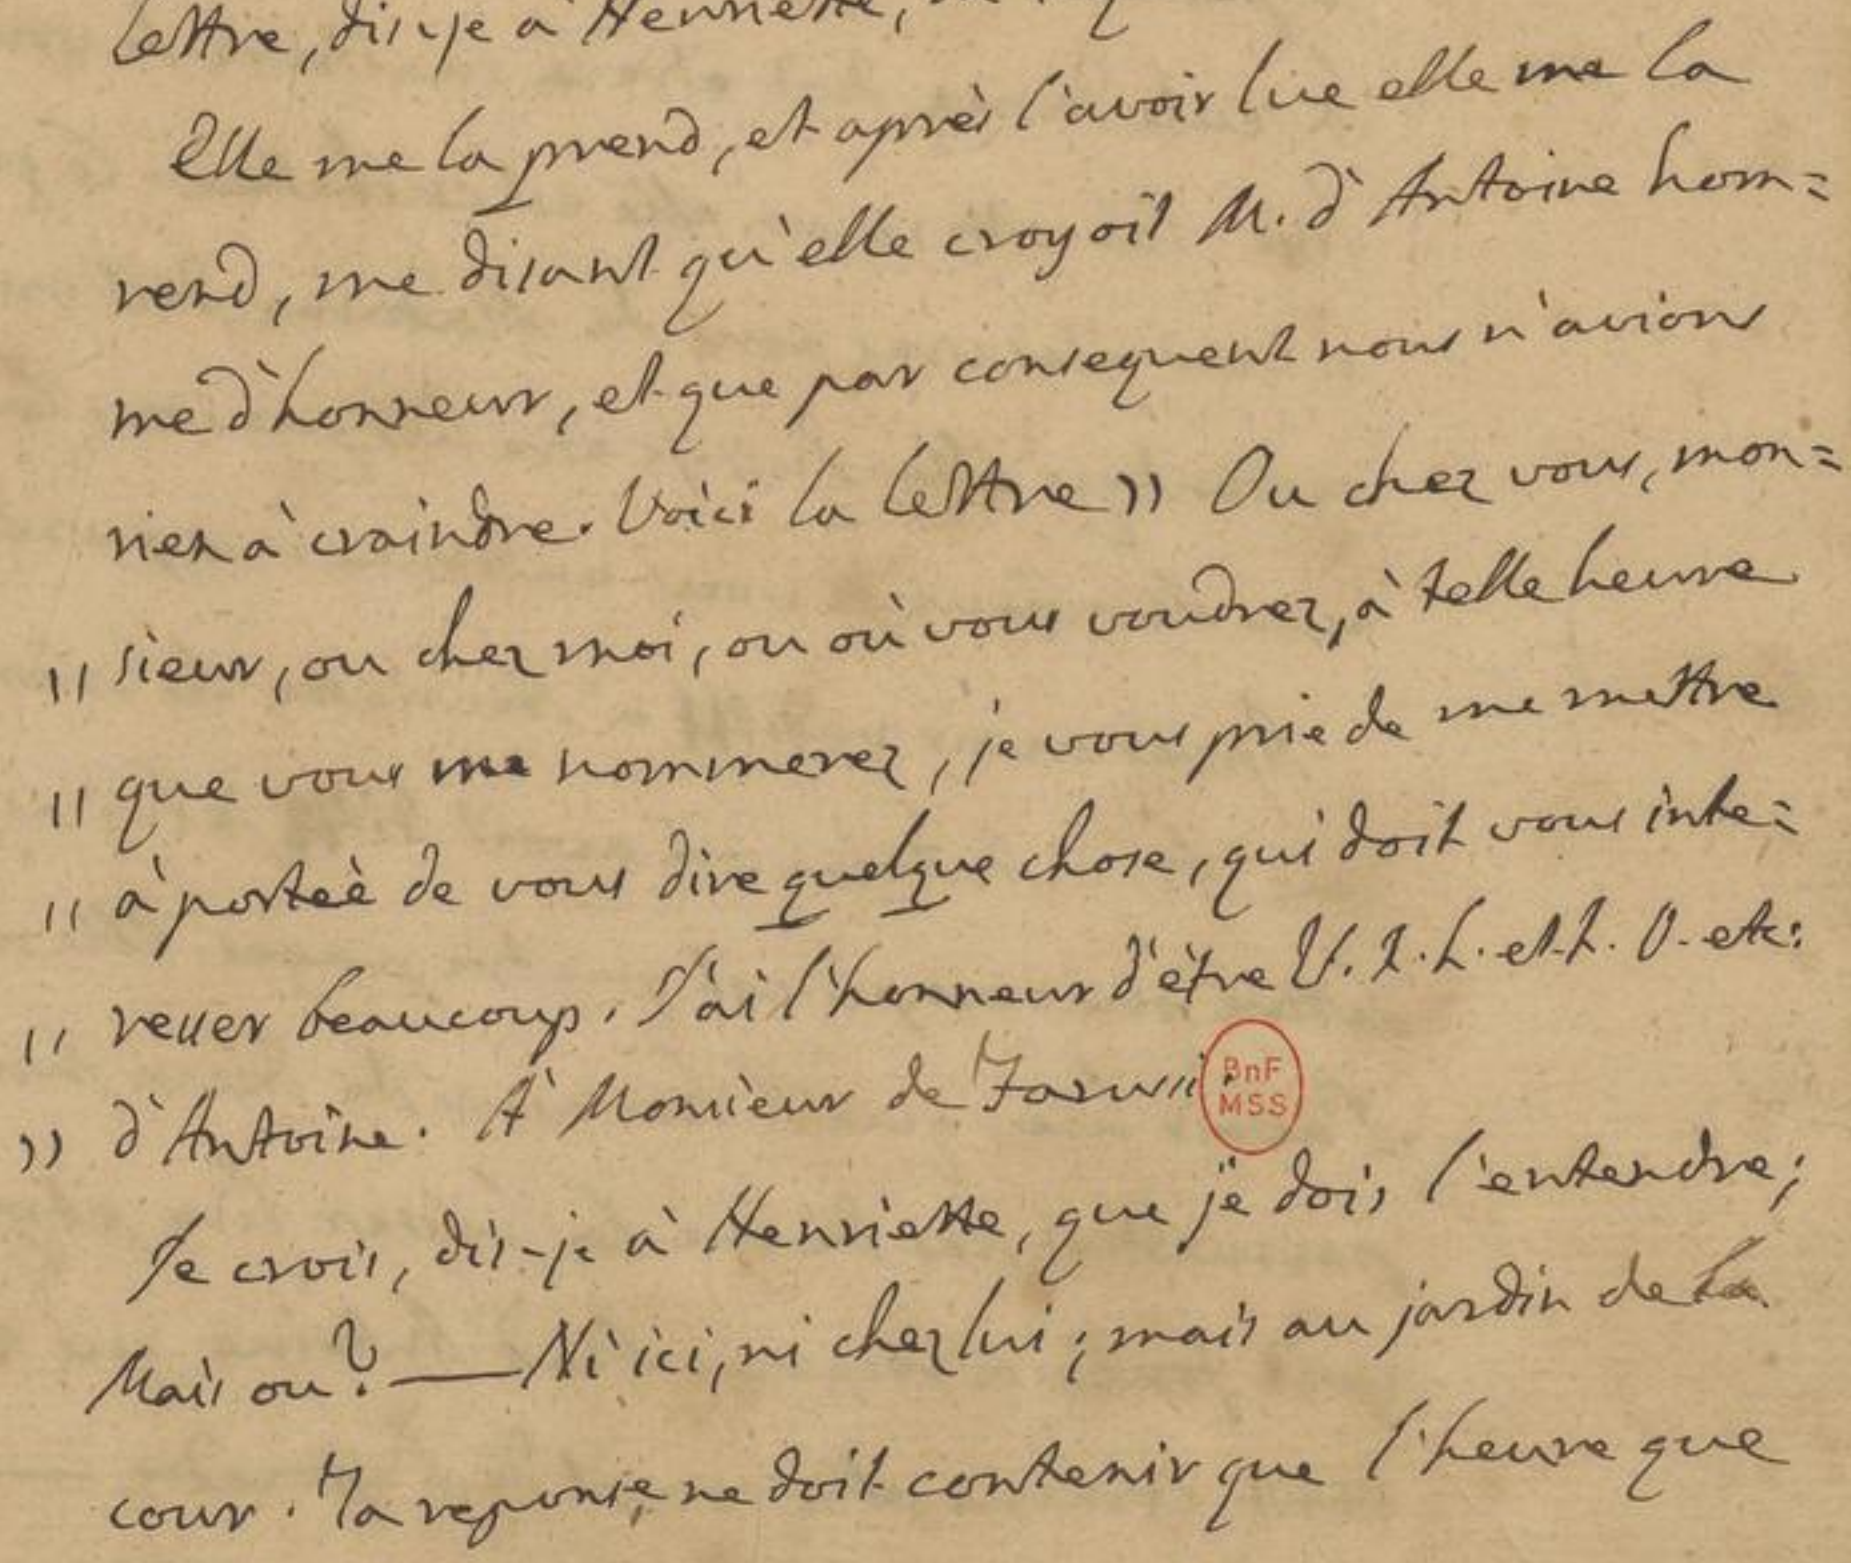 lettre, dis-je à Henriette,
Elle me la prend, et après l'avoir lue elle me la
rend, me disant qu'elle croyoit M. d'Antoine hom=
me d'honneur, et que par consequent nous n'avions
rien à craindre. Voici la lettre » Ou chez vous, mon=
" sieur, ou chez moi, ou où vous voudrez, à telle heure
" que vous me nommerez, je vous prie de me mettre
" à porteè de vous dire quelque chose, qui doit vous inte=
" resser beaucoup. J'ai l'honneur d'être V. T. h. et t. O. etc:
» d'Antoine. A Monsieur de Farusi.
BnF
MSS
Je crois, dis-je à Henriette, que je dois l'entendre;
Mais ou? — Ni ici, ni chez lui; mais au jardin de la
cour. Ta reponse ne doit contenir que l'heure que